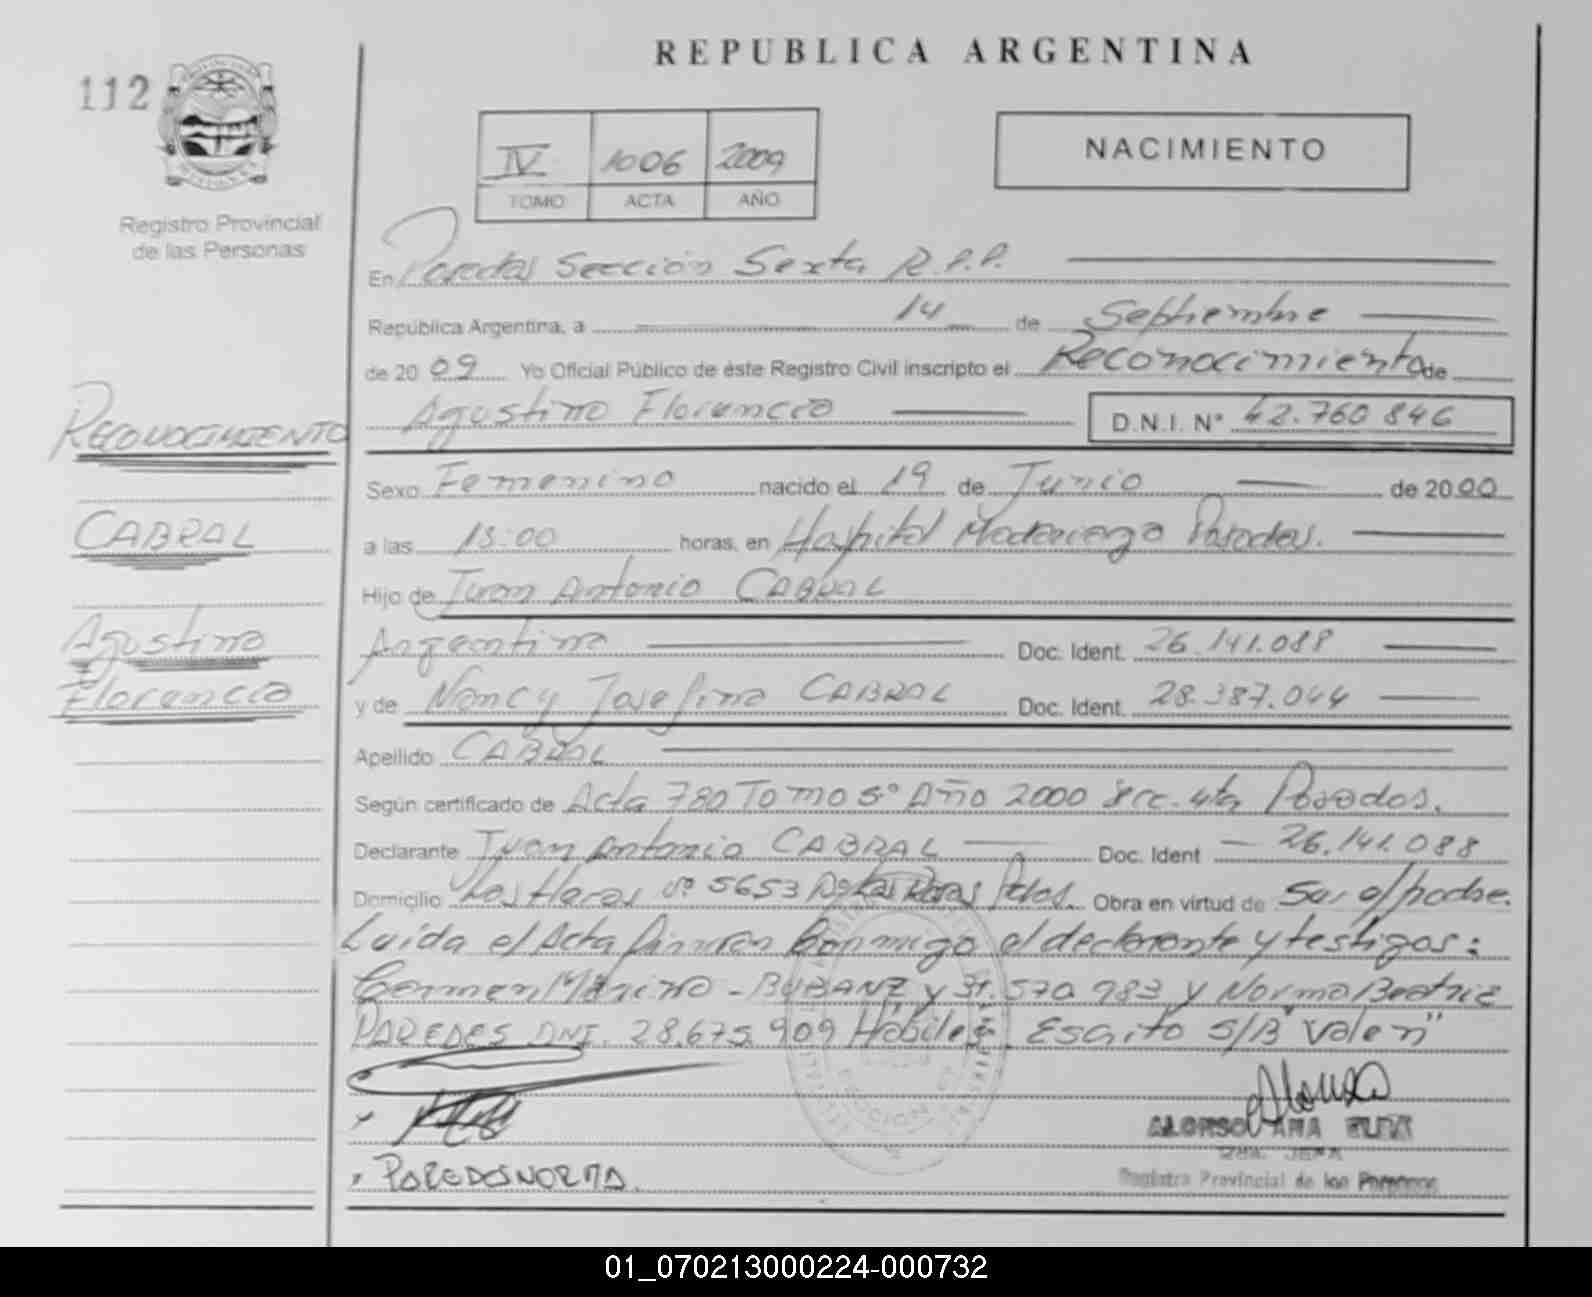 REPUBLICA ARGENTINA
112
IV 1006 2009
TOMO ACTA AÑO
NACIMIENTO
Registro Provincial
de las Personas
En Posadas Sección Sexta R.P.P.
República Argentina, a 14 de Septiembre
de 2009 Yo Oficial Público de éste Registro Civil inscripto el Reconocimiento de
Agustina Florencia D.N.I. N° 42.760 846
RECONOCIMIENTO
Sexo Femenino nacido el 19 de Junio de 2000
CABRAL
a las 13:00 horas, en Hospital Madariaga Posadas.
Hijo de Juan Antonio CABRAL
Agustina
Florencia
Argentina Doc. Ident. 26.141.088
y de Nancy Josefina CABRAL Doc. Ident. 28.387.044
Apellido CABRAL
Según certificado de Acta 780 Tomo 5° Año 2000 Secc. 4ta Posadas.
Declarante Juan Antonio CABRAL Doc. Ident 26.141.088
Domicilio Las Heras N° 5653 Las Rosas Pdas. Obra en virtud de Ser el padre.
Leída el Acta firman conmigo el declarante y testigos:
Carmen Marina y 31.570 983 y Norma Beatriz
PAREDES DNI. 28.675.909 Hábiles. Escrito S/B "Valen"
PAREDES NORMA.
ALONSO ANA
JEFA
Registro Provincial de las Personas
01_070213000224-000732